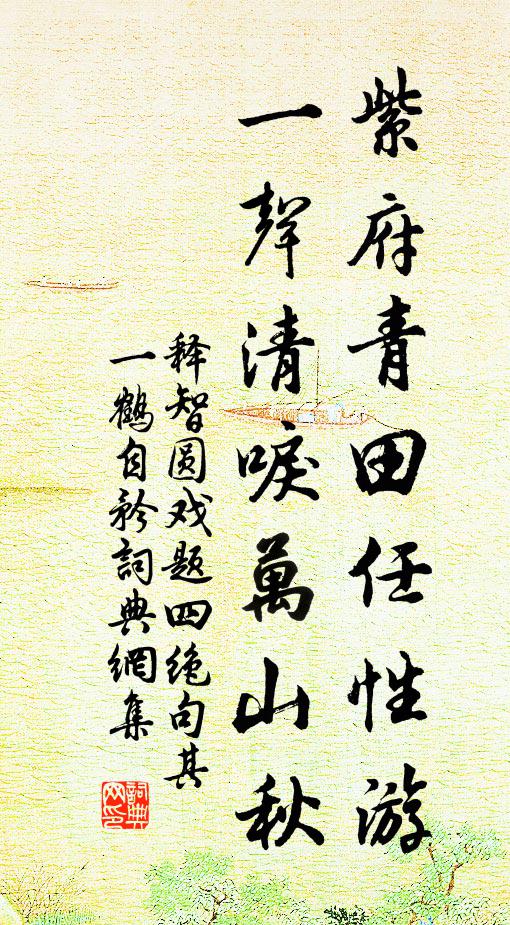 紫府青田任性游
一聲清唳萬山秋
释智圆戏题四绝句其
一鶴自矜詞典網集
詞典
网印